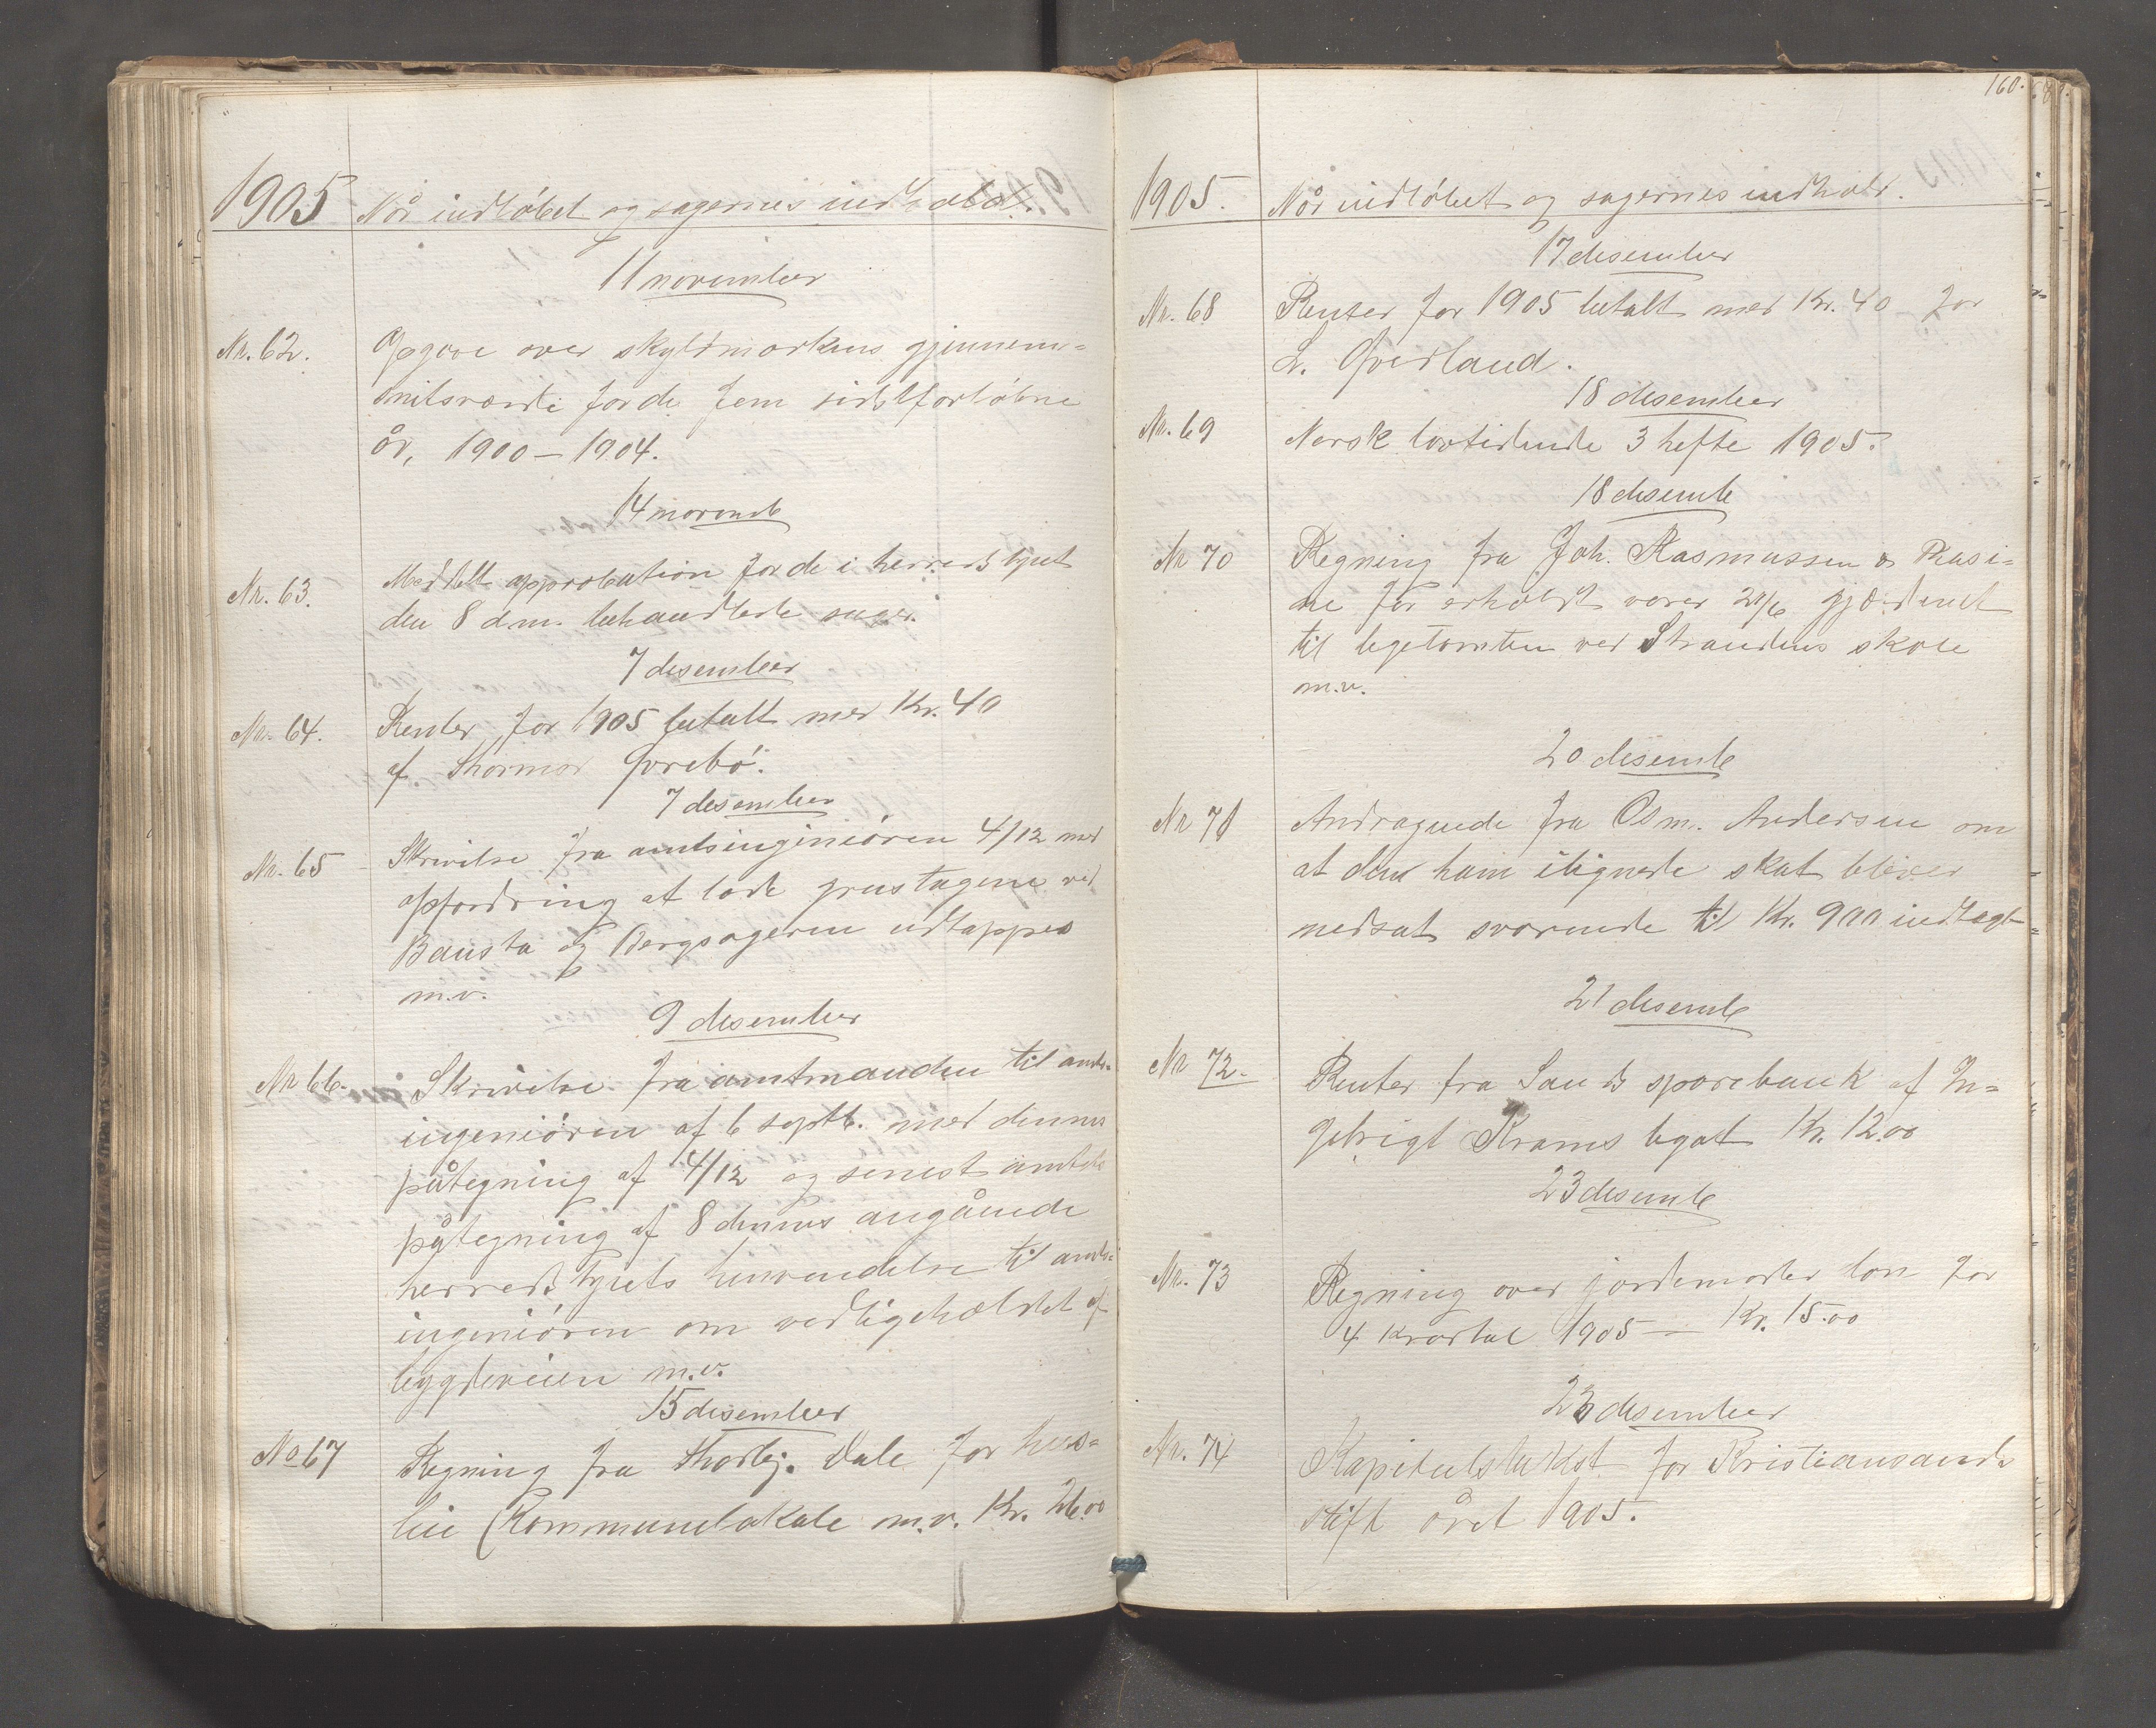 1905 Når indløbet og sagernes indhold.
11 november
Nr. 62. Opgave over skyldmarkens gjennem-
snitsværdi for de fem sidstforløbne
år, 1900-1904.
14 novemb
Nr. 63. Meddelt approbation for de i herredstyret
den 8 d.m. behandlede sager.
7 desember
Nr. 64. Renter for 1905 betalt med Kr. 40
af Thormod
7 desember
Nr. 65 Skrivelse fra amtsingeniøren 4/12 med
opfordring at lade grustagene ved
Bausta og Bergsageren udtappes
m.v.
9 desember
Nr 66. Skrivelse fra amtmanden til amts-
ingeniøren af 6 septb. med dennes
påtegning af 4/12 og senest amtets
påtegning af 8 dennes angående
herredstyrets henvendelse til amts-
ingeniøren om vedligeholdet af
bygdeveien m.v.
15 desember
No 67 Regning fra Thorbj. Dale for hus-
leie (Kommunelokale m.v. Kr. 26.00
160.
1905. Når indløbet og sagernes indhold.
17 desember
Nr. 68 Renter for 1905 betalt med Kr. 40 for
L. Øverland.
18 desember
Nr. 69 Norsk lovtidende 3 hefte 1905.
18 desemb
Nr 70 Regning fra Joh. Rasmussen & Rasi-
ne for erholdt varer 21/6 gjærdenet
til legetomten ved Strandens skole
m.v.
20 desemb
Nr 71 Andragende fra Osm. Andersen om
at den ham ilignede skat bliver
nedsat svarende til Kr. 900 indtægt
21 desemb
Nr 72. Renter fra Sands sparebank af In-
gebrigt Krams legat Kr. 12.00
23 desemb
Nr. 73 Regning over jordemoder løn for
4 kvartal 1905 — Kr. 15.00
23 desember
Nr. 74 Kapitelstakst for Kristiansands
stift året 1905.